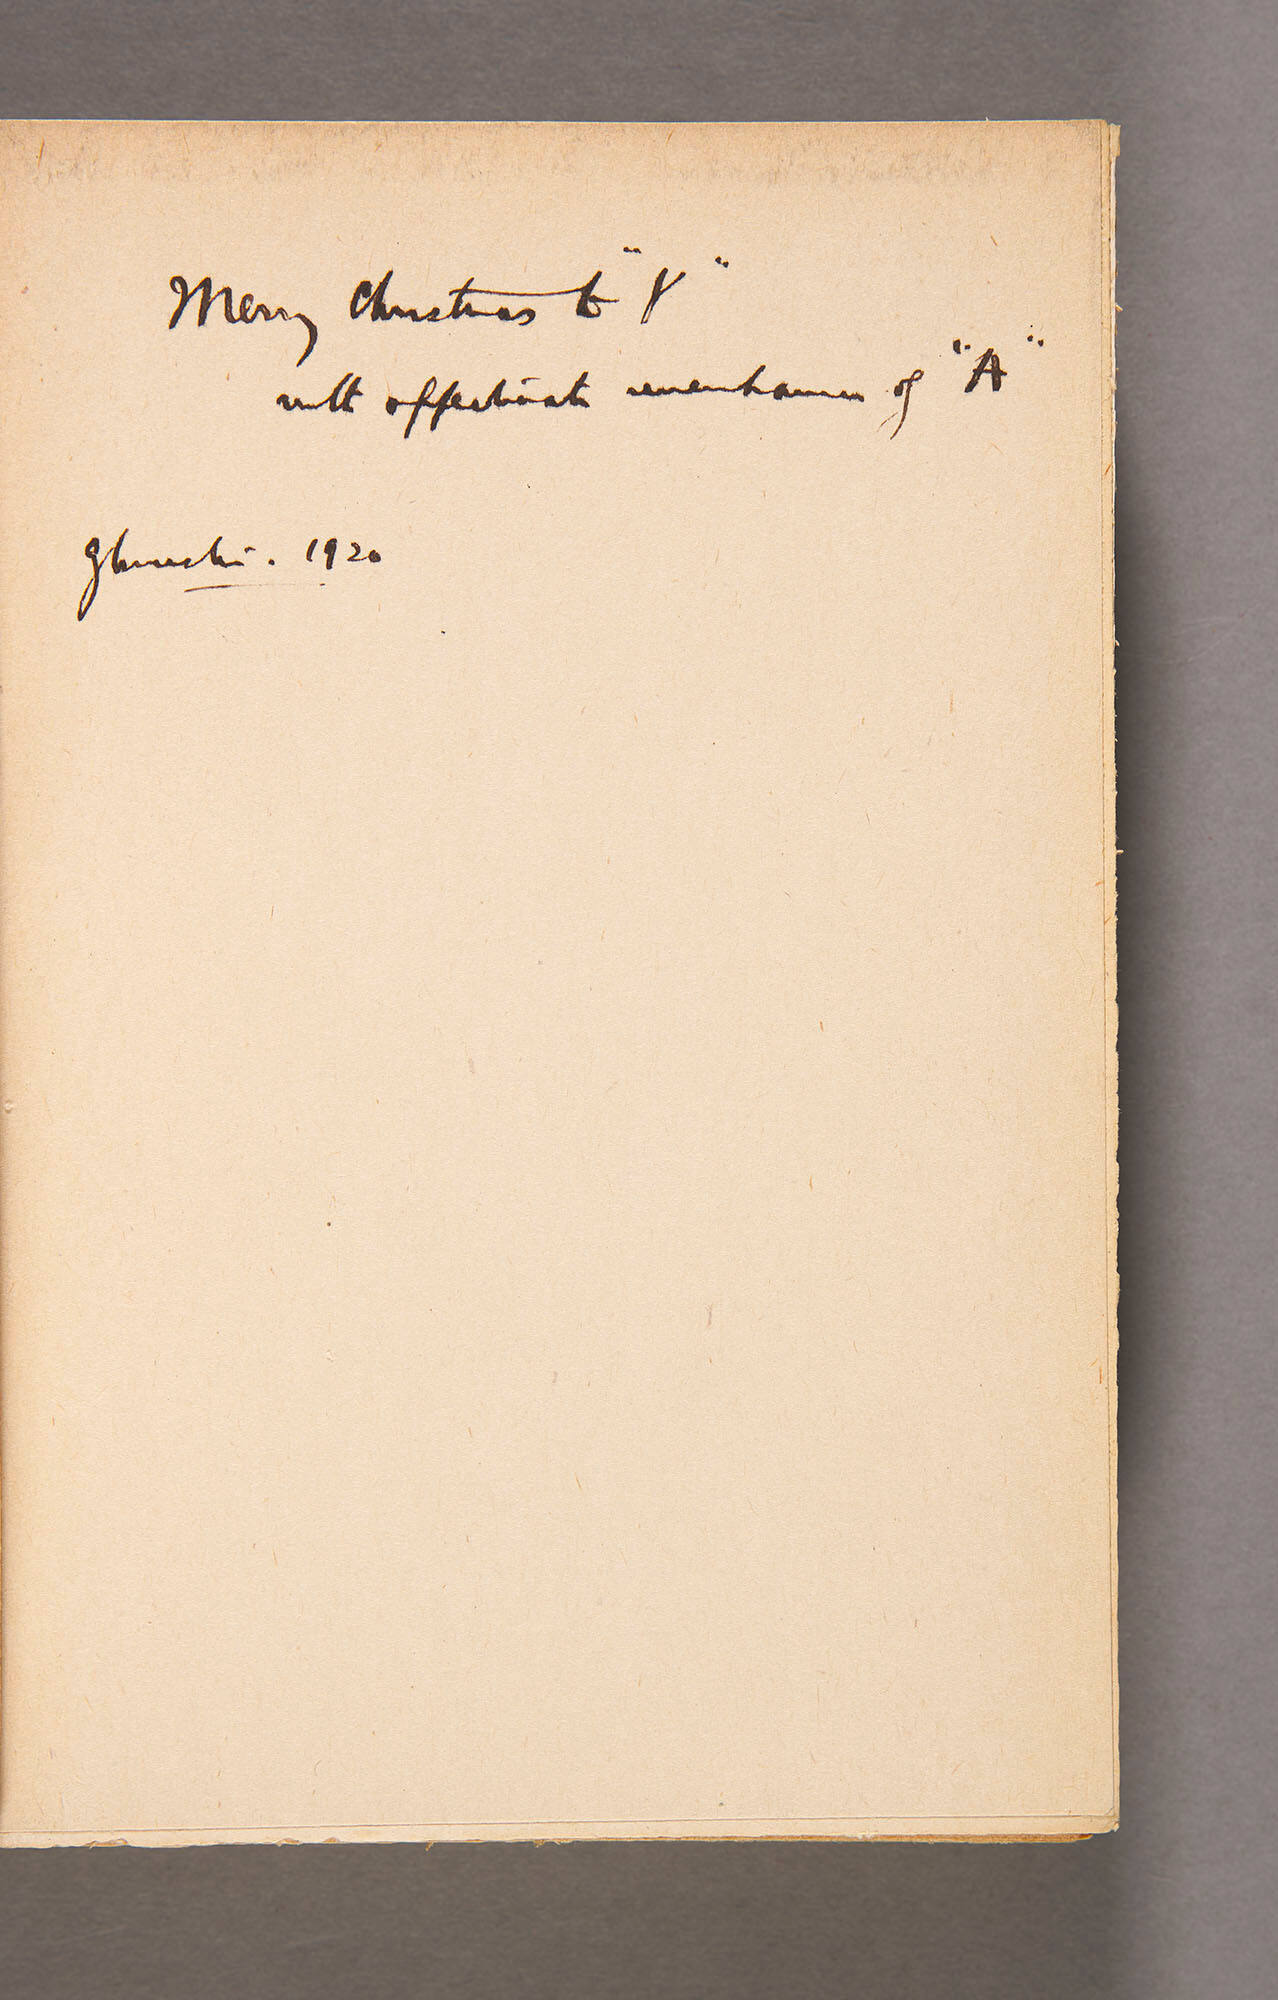 Merry Christmas to "V"
with affectionate remembrance of "A"
1920